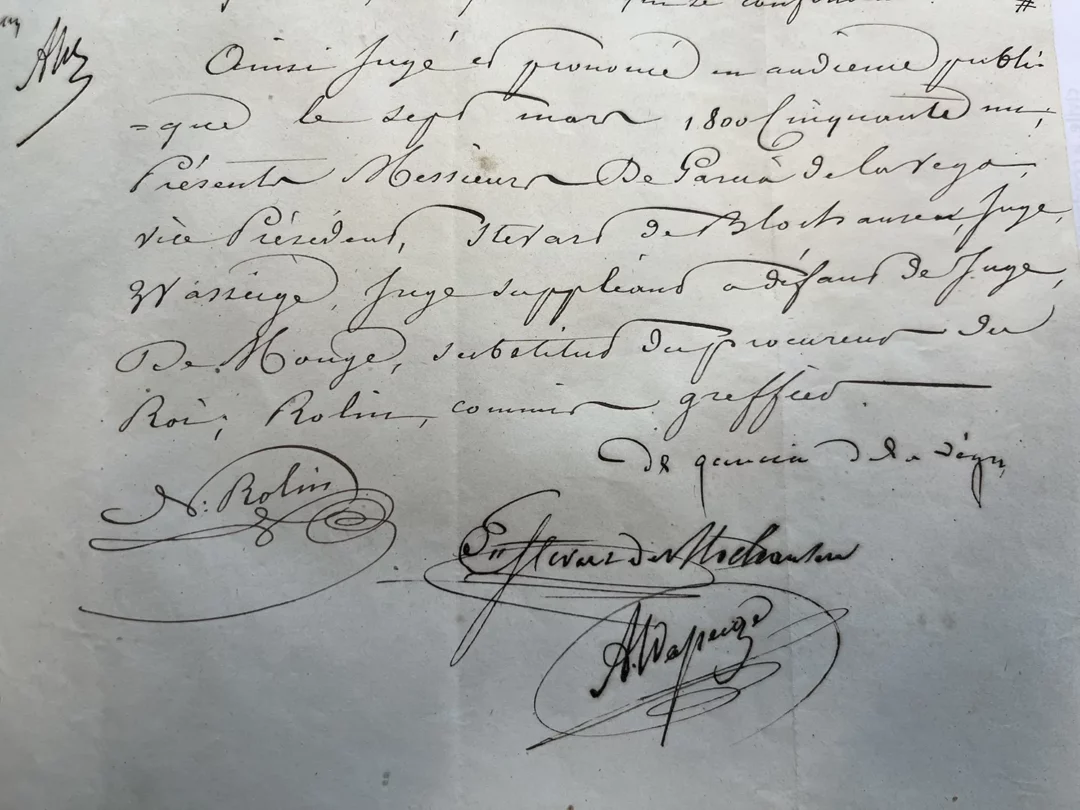 #
Ainsi Jugé et prononcé en audience publi
=que le sept mars 1800 Cinquante un;
Présents Messieurs De Garcia de la Vega,
vice Président, Stevart de Blochausen, Juge,
Wasseige, Juge suppléant a défaut de Juge,
De Mouge, substitut du procureur du
Roi; Rolin, commis greffier
de garcia dela véga
N. Rolin
Stevart de Blochausen
A. Wasseige